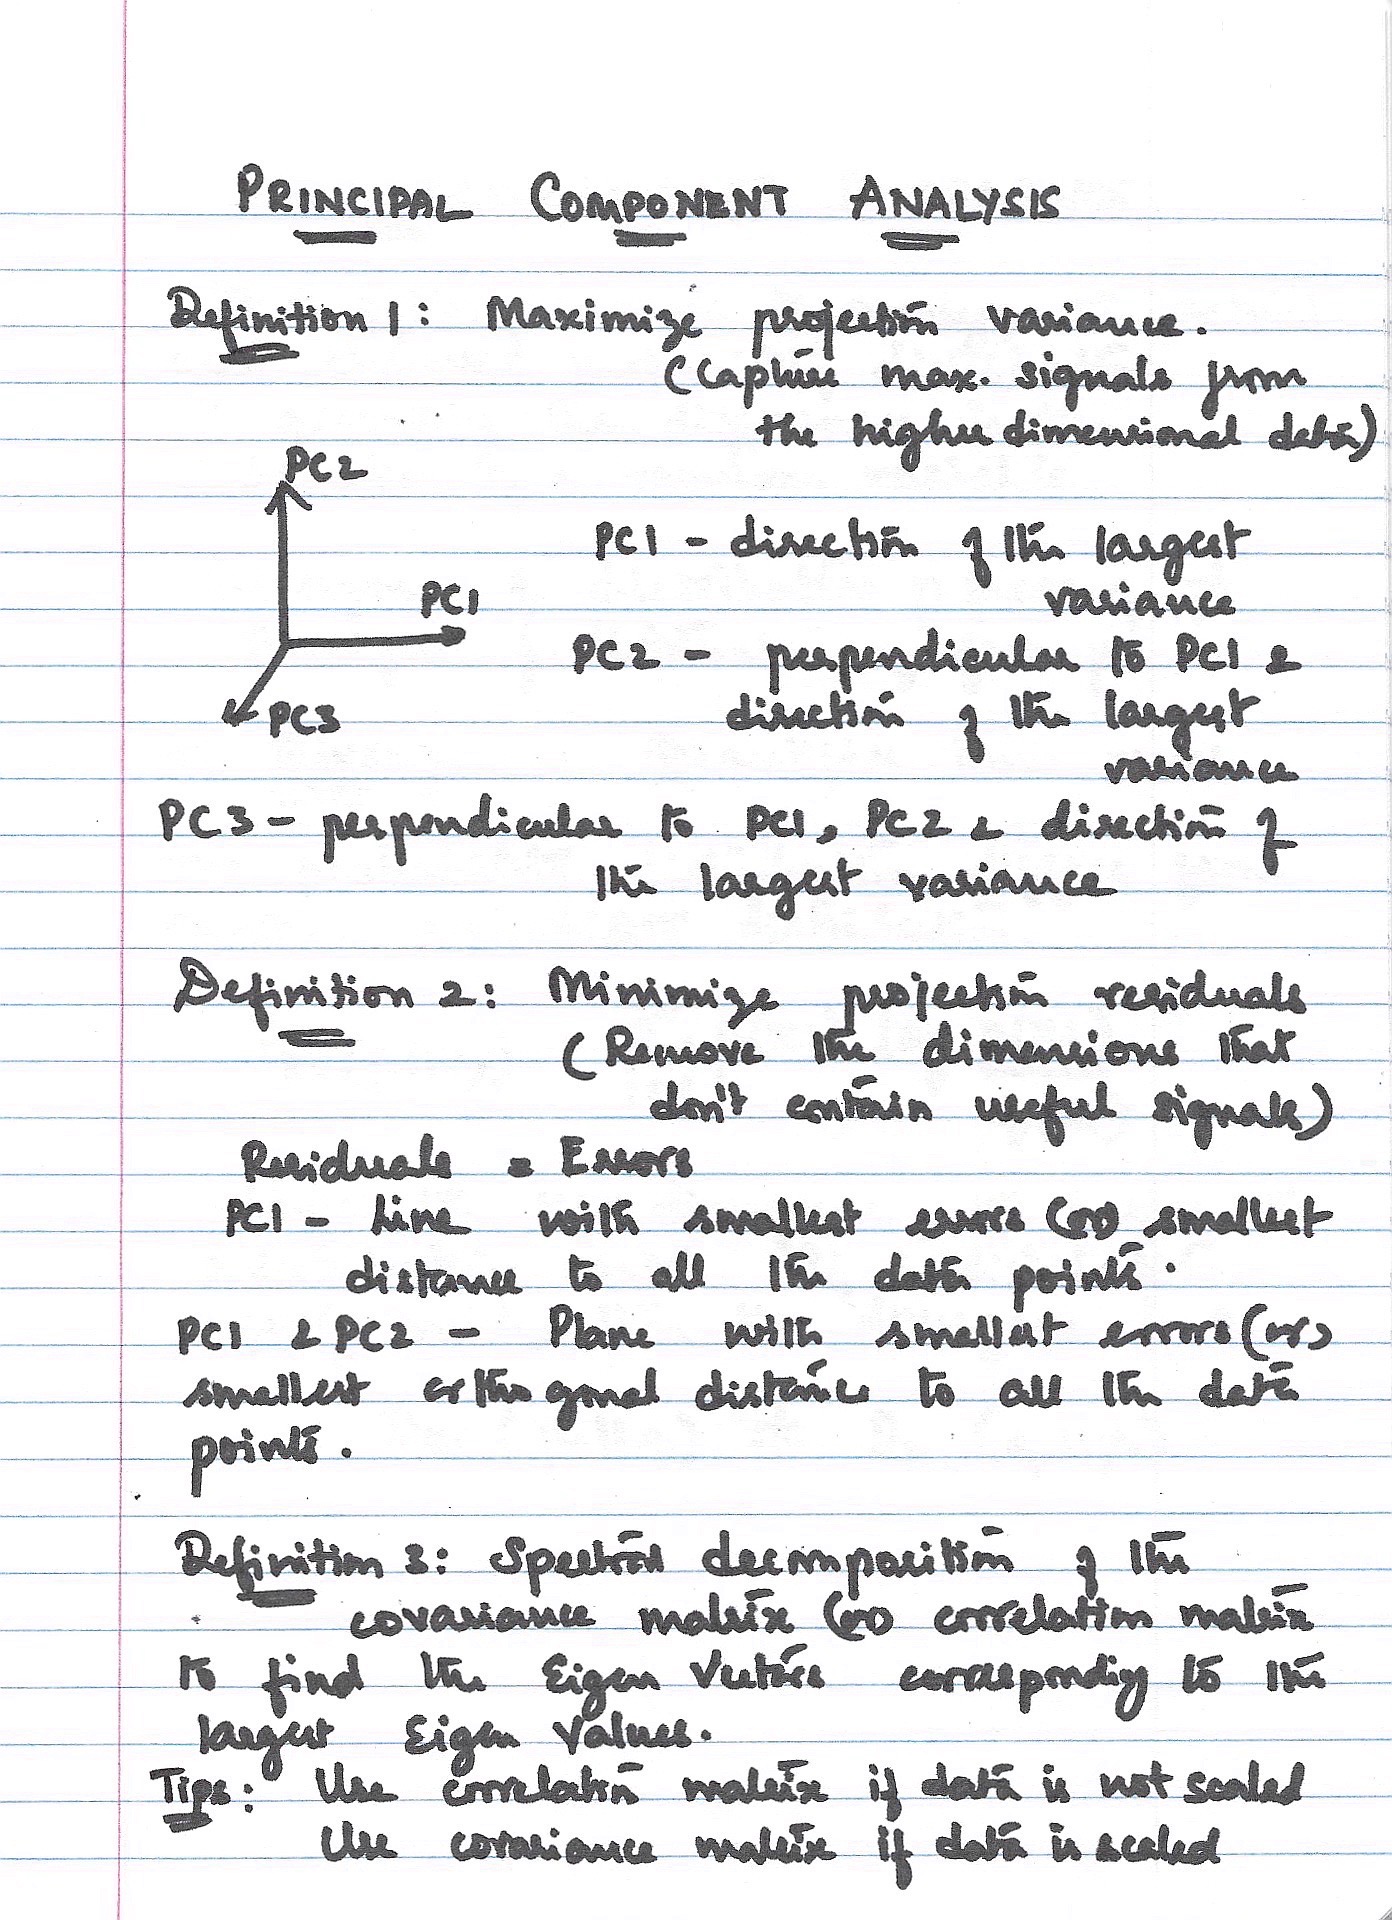 PRINCIPAL COMPONENT ANALYSIS
Definition 1: Maximize projection variance.
(Capture max. signals from
the higher dimensional data)
PC2
PC1
PC3
PC1 - direction of the largest
variance
PC2 - perpendicular to PC1 &
direction of the largest
variance
PC3 - perpendicular to PC1, PC2 & direction of
the largest variance
Definition 2: Minimize projection residuals
(Remove the dimensions that
don't contain useful signals)
Residuals = Errors
PC1 - Line with smallest errors (or) smallest
distance to all the data points.
PC1 & PC2 - Plane with smallest errors (or)
smallest orthogonal distance to all the data
points.
Definition 3: Spectral decomposition of the
covariance matrix (or) correlation matrix
to find the Eigen Vectors corresponding to the
largest Eigen Values.
Tips: Use correlation matrix if data is not scaled
Use covariance matrix if data is scaled